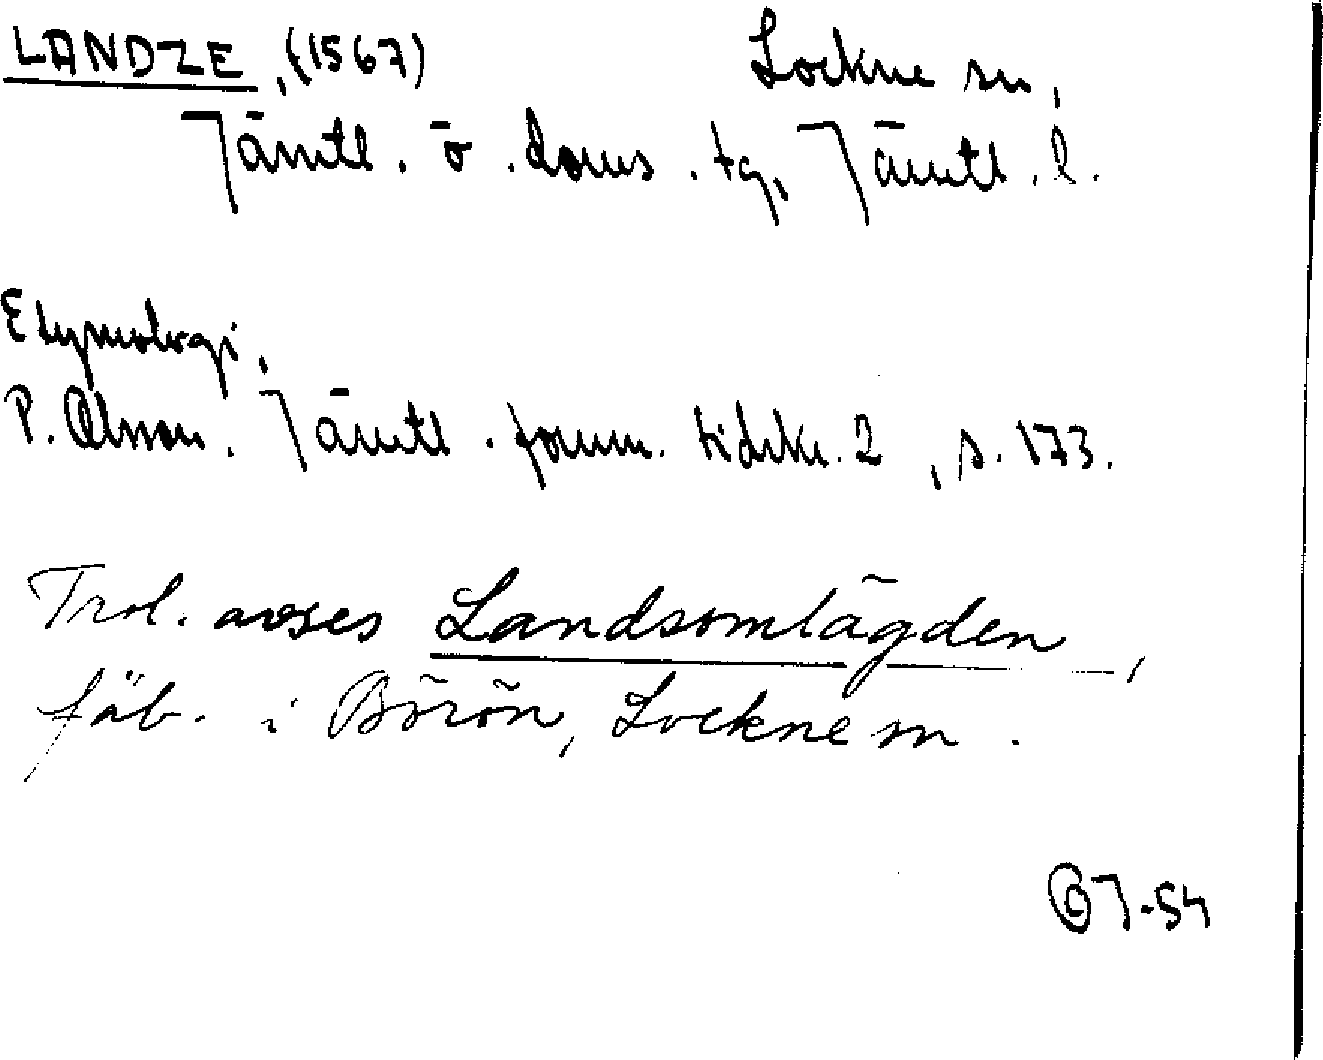 LANDZE, (1567) Lockne sn,
Jämtl. ö. doms. tg, Jämtl. l.
Etymologi,
P. Olsson. Jämtl. fornm. tidskr. 2, s. 173.
Trol. avses Landsomlägden,
fäb. i Börön, Lockne sn.
J-54